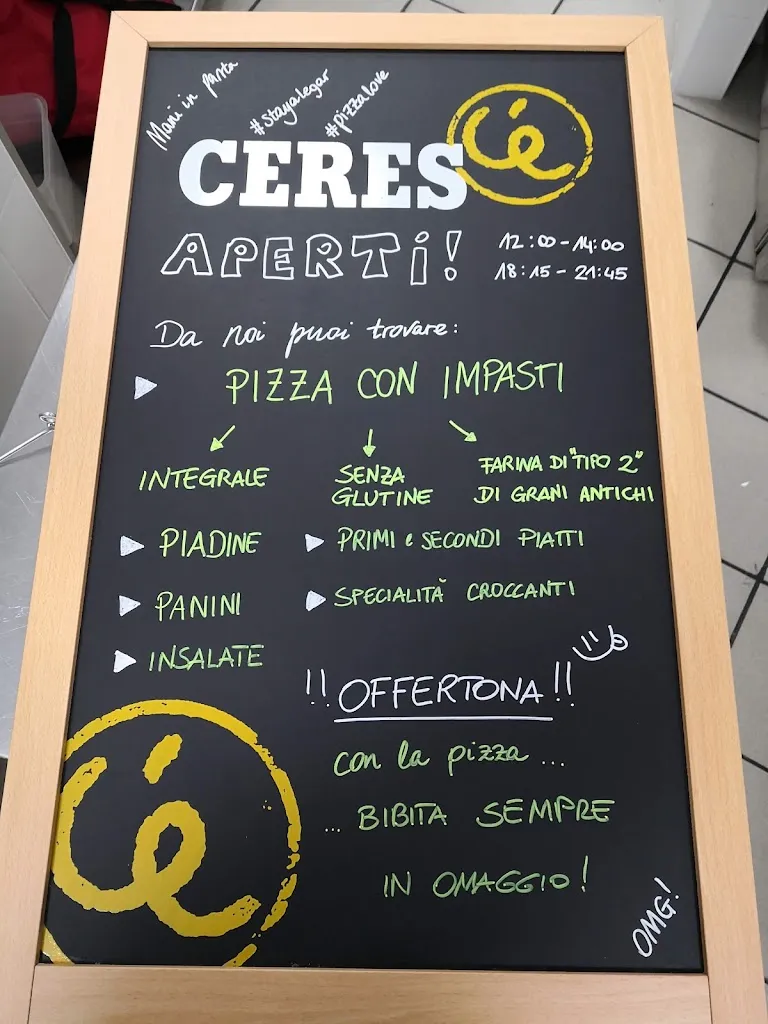 Mani in pasta
#stayalegar
#pizzalove
c'è
CERES
APERTi! 12:00-14:00
18:15-21:45
Da noi puoi trovare:
PIZZA CON IMPASTI
INTEGRALE
SENZA
GLUTINE
FARINA DI "TIPO 2"
DI GRANI ANTICHI
PIADINE
PRIMI e SECONDI PIATTI
PANINI
SPECIALITÀ CROCCANTI
INSALATE
!! OFFERTONA !!
con la pizza ...
... BIBITA SEMPRE
IN OMAGGIO!
c'è
OMG!